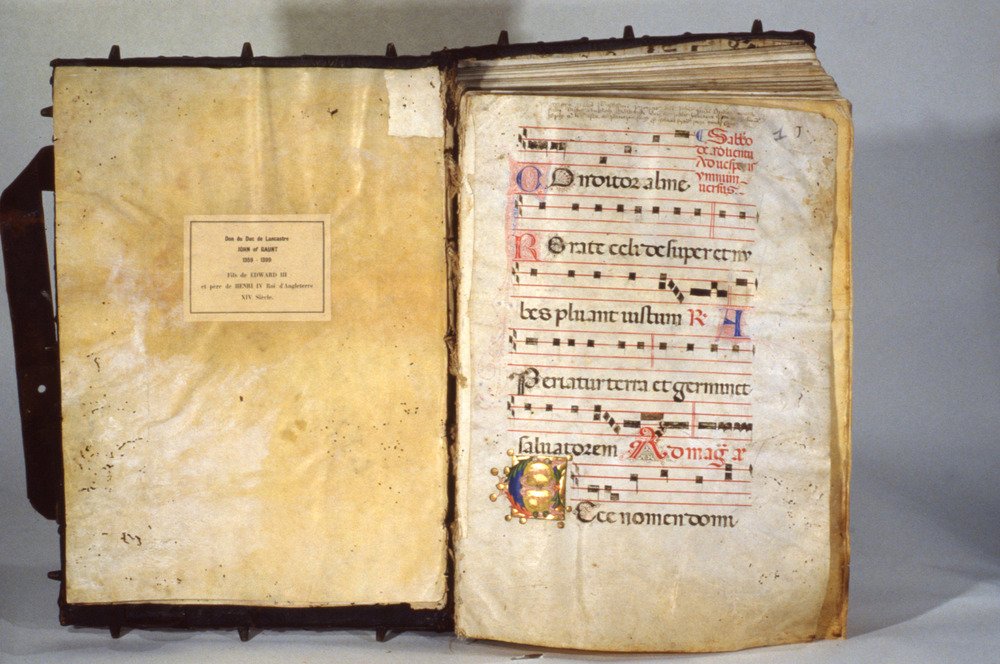 Don du Duc de Lancastre
JOHN of GAUNT
1360 - 1399
Fils de EDWARD III
et père de HENRI IV Roi d'Angleterre
XIV Siècle.
Sabbo
de aduentu
Ad uesperas
ymnum
uersus.
COnditor alme
RO rate celi desuper et nu
bes pluant iustum R A
Periatur terra et germinet
saluatorem Ad mag̃ a
Ecce nomen domi